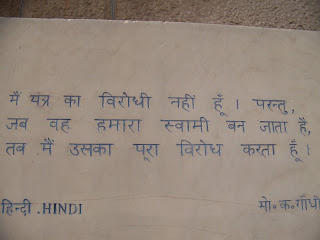 मैं यंत्र का विरोधी नहीं हूँ । परन्तु,
जब वह हमारा स्वामी बन जाता है,
तब मैं उसका पूरा विरोध करता हूँ ।
हिन्दी . HINDI
मो॰क॰गाँधी